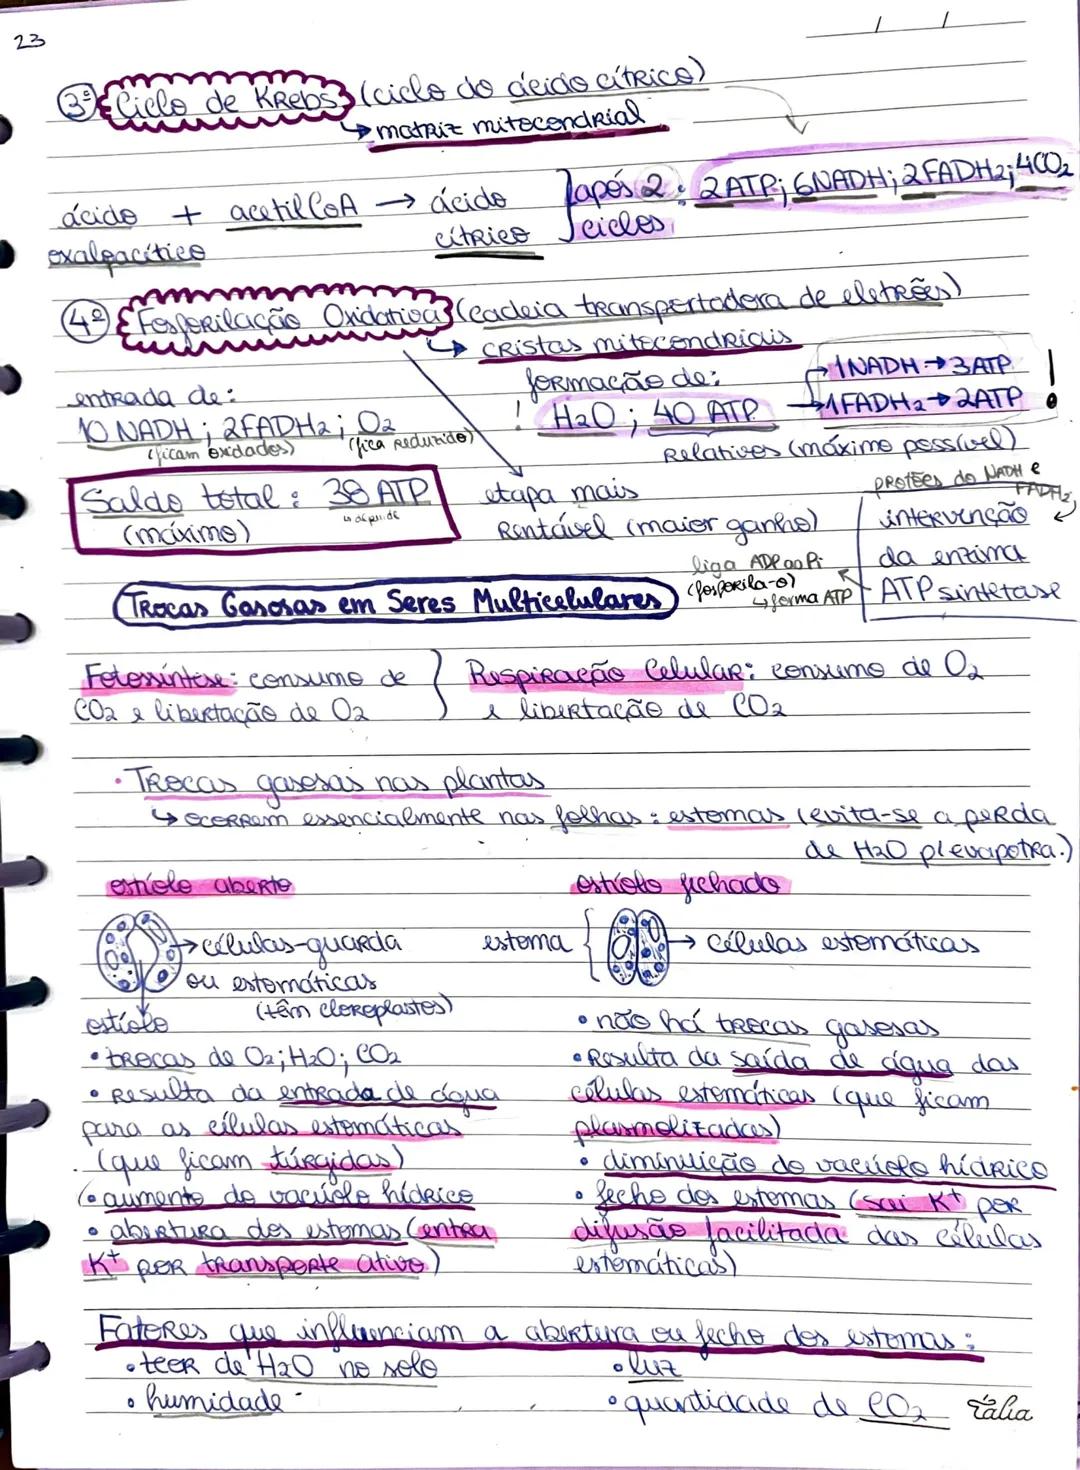 23
3º Ciclo de Krebs (ciclo do ácido cítrico)
↳ matriz mitocondrial
ácido + acetil CoA → ácido } após 2 : 2ATP; 6NADH; 2FADH2; 4CO2
oxaloacítico cítrico ciclos
4º Fosforilação Oxidativa (cadeia transportadora de eletrões)
↳ cristas mitocondriais
entrada de: formação de: → 1NADH → 3ATP !
10 NADH ; 2FADH2 ; O2 ! H2O ; 40 ATP → 1FADH2 → 2ATP
(ficam oxidados) (fica reduzido) Relativos (máximo possível)
Saldo total : 38 ATP
↳ depende
(máximo)
etapa mais
Rentável (maior ganho)
protões do NADH e
FADH2
intervenção
da enzima
ATP sintetase
liga ADP ao Pi
(fosforila-o)
↳ forma ATP
Trocas Gasosas em Seres Multicelulares
Fotossíntese: consumo de } Respiração Celular: consumo de O2
CO2 e libertação de O2 e libertação de CO2
• Trocas gasosas nas plantas
↳ ocorrem essencialmente nas folhas : estomas (evita-se a perda
de H2O p/ evapotra.)
ostíolo aberto
→ células-guarda
ou estomáticas
(têm cloroplastos)
ostíolo
• trocas de O2; H2O; CO2
• Resulta da entrada de água
para as células estomáticas
(que ficam túrgidas)
• aumento do vacúolo hídrico
• abertura dos estomas (entra
K+ por transporte ativo)
ostíolo fechado
estoma { → células estomáticas
• não há trocas gasosas
• Resulta da saída de água das
células estomáticas (que ficam
plasmolizadas)
• diminuição do vacúolo hídrico
• fecho dos estomas (sai K+ por
difusão facilitada das células
estomáticas)
Fatores que influenciam a abertura ou fecho dos estomas :
• teor de H2O no solo • luz
• humidade • quantidade de CO2
Tália